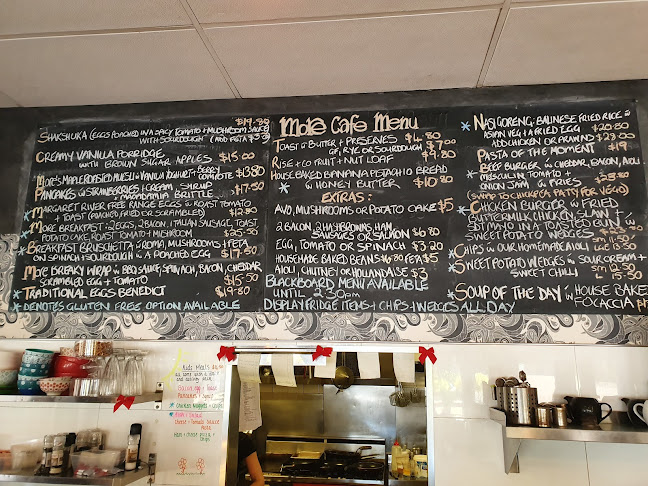 $19.80
SHAKSHUKA (EGGS POACHED IN A SPICY TOMATO + MUSHROOM SAUCE
WITH SOURDOUGH) (ADD FETA $3.5)
CREAMY VANILLA PORRIDGE
WITH BROWN SUGAR APPLES $15.00
MORE'S MAPLE ROASTED MUESLI W VANILLA YOGHURT + BERRY COMPOTE $13.80
PANCAKES W STRAWBERRIES + CREAM, SYRUP
+ MACADAMIA BRITTLE $17.50
* MARGARET RIVER FREE RANGE EGGS W ROAST TOMATO
+ TOAST (POACHED, FRIED OR SCRAMBLED) $12.80
* MORE BREAKFAST: 2 EGGS, 2 BACON, ITALIAN SAUSAGE, TOAST
POTATO CAKE, ROAST TOMATO + MUSHROOM $25.50
* BREAKFAST BRUSCHETTA W ROMA, MUSHROOMS + FETA
ON SPINACH + SOURDOUGH W A POACHED EGG $17.50
MORE BREAKY WRAP W BBQ SAUCE, SPINACH, BACON, CHEDDAR
SCRAMBLED EGG + TOMATO $15.50
* TRADITIONAL EGGS BENEDICT $19.80
* DENOTES GLUTEN FREE OPTION AVAILABLE
MORE CAFE MENU
TOAST W BUTTER + PRESERVES $4.80
GF, RYE OR SOURDOUGH $7.00
RISE + CO FRUIT + NUT LOAF $9.00
HOUSE BAKED BANANA PISTACHIO BREAD
W HONEY BUTTER $10.80
EXTRAS:
AVO, MUSHROOMS OR POTATO CAKE $5
2 BACON, 2 HASHBROWNS, HAM,
SAUSAGES OR SALMON $6.80
EGG, TOMATO OR SPINACH $3.20
HOUSEMADE BAKED BEANS $6.80 FETA $5
AIOLI, CHUTNEY OR HOLLANDAISE $3
BLACKBOARD MENU AVAILABLE
UNTIL 2.30PM
DISPLAY FRIDGE ITEMS + CHIPS + WEDGES ALL DAY
* NASI GORENG: BALINESE FRIED RICE W
ASIAN VEG + A FRIED EGG $20.80
ADD CHICKEN OR PRAWN $23.00
PASTA OF THE MOMENT $19
* BEEF BURGER W CHEDDAR, BACON, AIOLI
TOMATO +
ONION JAM W FRIES
CHICKEN BURGER W FRIED
BUTTERMILK CHICKEN, SLAW +
IN A TOASTED BUN W
SWEET POTATO WEDGES
* CHIPS W OUR HOMEMADE AIOLI
* SWEET POTATO WEDGES W SOUR CREAM +
SWEET CHILLI
SOUP OF THE DAY W HOUSE BAKED
FOCACCIA
Kids Meals